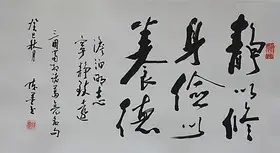 静以修
身俭以
养德
澹泊明志
宁静致远
三国
诸葛亮句
癸巳秋月